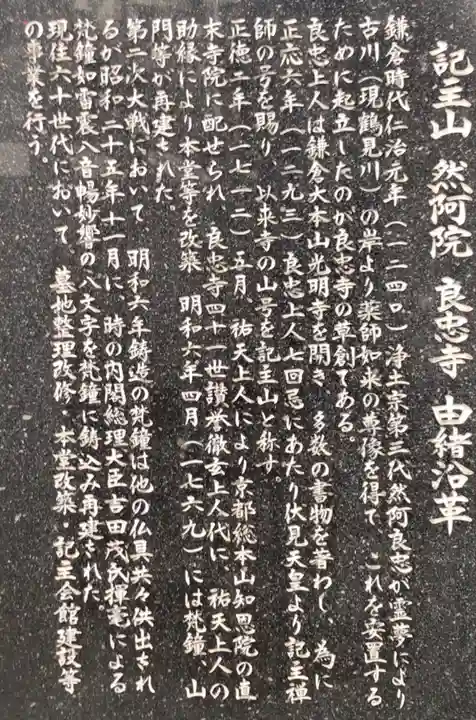 記主山 然阿院 良忠寺 由緒沿革
鎌倉時代仁治元年(一二四〇)浄土宗第三代然阿良忠が霊夢により
古川(現鶴見川)の岸より薬師如来の尊像を得て、これを安置する
ために起立したのが良忠寺の草創である。
良忠上人は鎌倉大本山光明寺を開き 多数の書物を著わし、為に
正応六年(一二九三)良忠上人七回忌にあたり伏見天皇より記主禅
師の号を賜り、以来寺の山号を記主山と称す。
正徳二年(一七一二)五月、祐天上人により京都総本山知恩院の直
末寺院に配せられ、良忠寺四十一世讃誉徹玄上人代に、祐天上人の
助縁により本堂等を改築 明和六年四月(一七六九)には梵鐘、山
門等が再建された。
第二次大戦において、明和六年鋳造の梵鐘は他の仏具共々供出され
るが昭和二十五年十一月に、時の内閣総理大臣吉田茂氏揮毫による
梵鐘如雷震八音暢妙響の八文字を梵鐘に鋳込み再建された。
現住六十世代において、墓地整理改修・本堂改築・記主会館建設等
の事業を行う。